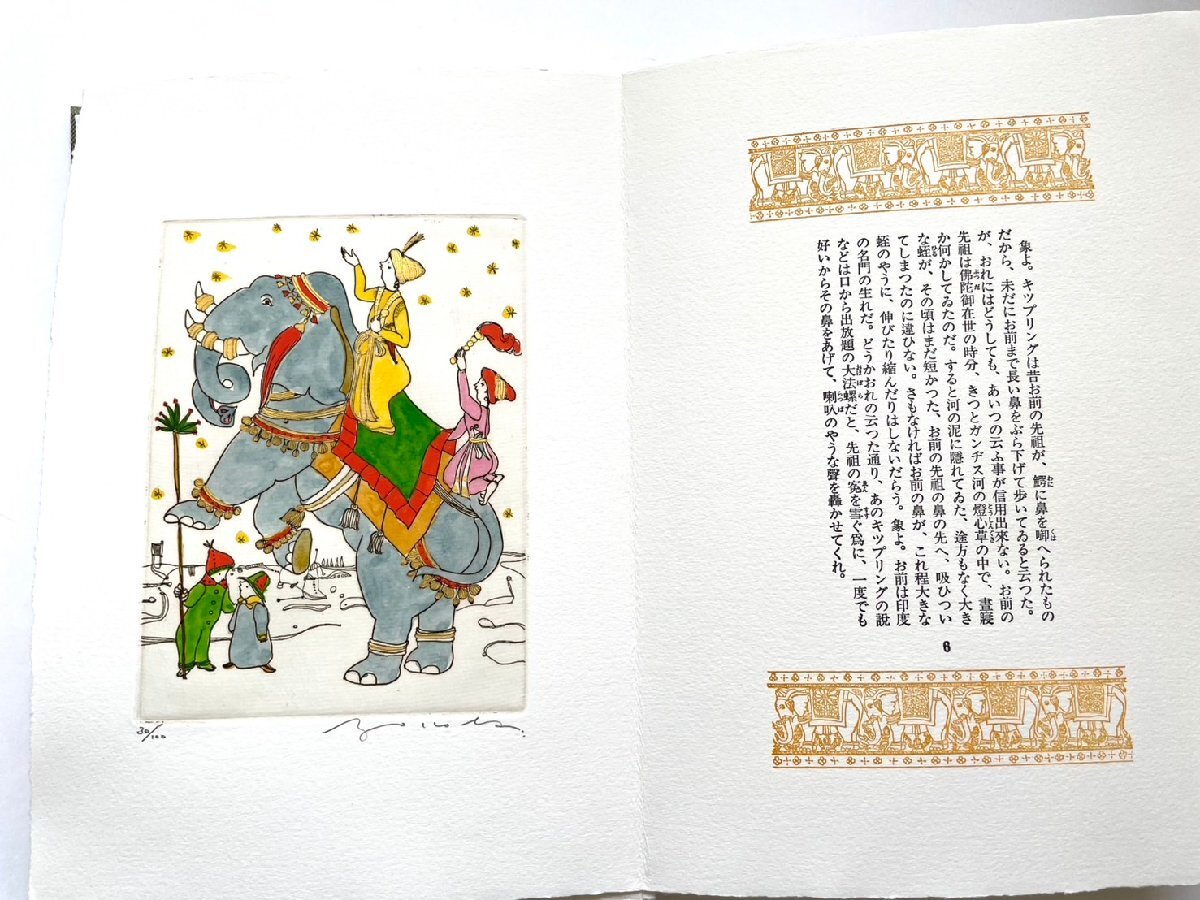 象よ。キツプリングは昔お前の先祖が、鰐に鼻を啣へられたもの
だから、未だにお前まで長い鼻をぶら下げて歩いてゐると云つた。
が、おれにはどうしても、あいつの云ふ事が信用出來ない。お前の
先祖は佛陀御在世の時分、きつとガンヂス河の燈心草の中で、晝寢
か何かしてゐたのだ。すると河の泥に隱れてゐた、途方もなく大き
な蛭が、その頃はまだ短かつた、お前の先祖の鼻の先へ、吸ひつい
てしまつたのに違ひない。さもなければお前の鼻が、これ程大きな
蛭のやうに、伸びたり縮んだりはしないだらう。象よ。お前は印度
の名門の生れだ。どうかおれの云つた通り、あのキツプリングの説
などは口から出放題の大法螺だと、先祖の寃を雪ぐ爲に、一度でも
好いからその鼻をあげて、喇叭のやうな聲を轟かせてくれ。
6
30/100